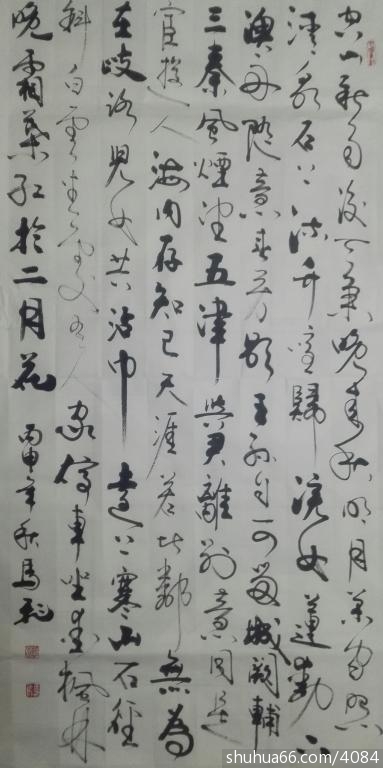 空山新雨後天氣晚來秋明月松間照
清泉石上流竹喧歸浣女蓮動下
漁舟隨意春芳歇王孫自可留城闕輔
三秦風煙望五津與君離別意同是
宦遊人海內存知己天涯若比鄰無為
在歧路兒女共沾巾遠上寒山石徑
斜白雲生處有人家停車坐愛楓林
晚霜葉紅於二月花 丙申年秋馬
shuhua66.com/4084